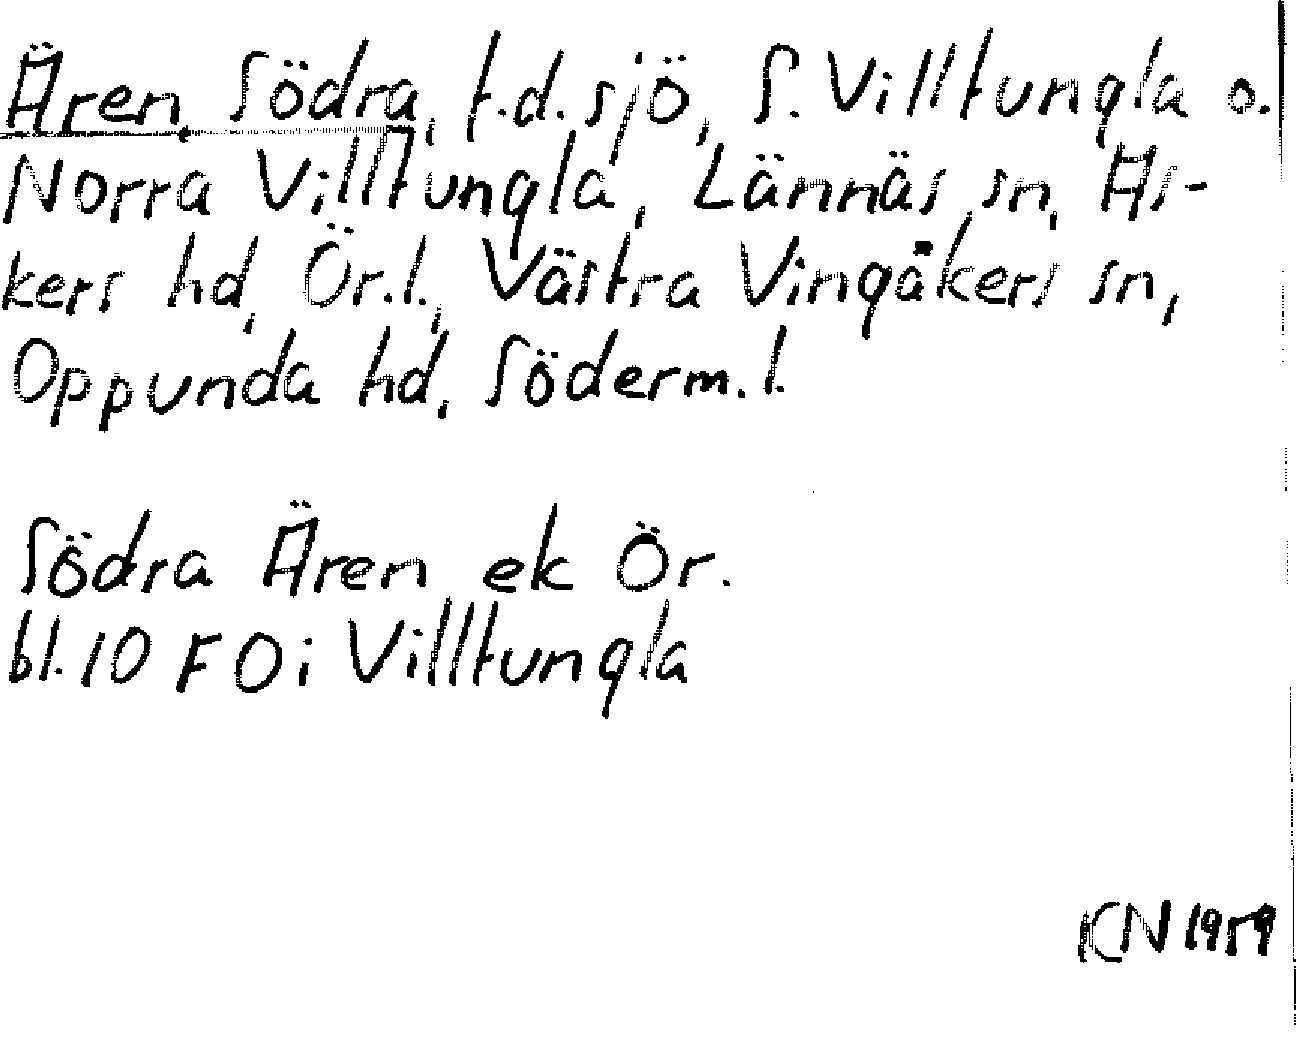 Ären, Södra, f.d. sjö, S. Villtungla o.
Norra Villtungla, Lännäs sn, As-
kers hd, Ör.l., Västra Vingåkers sn,
Oppunda hd, Söderm.l.
Södra Ären ek Ör.
bl. 10 F O i Villtungla
KN 1959